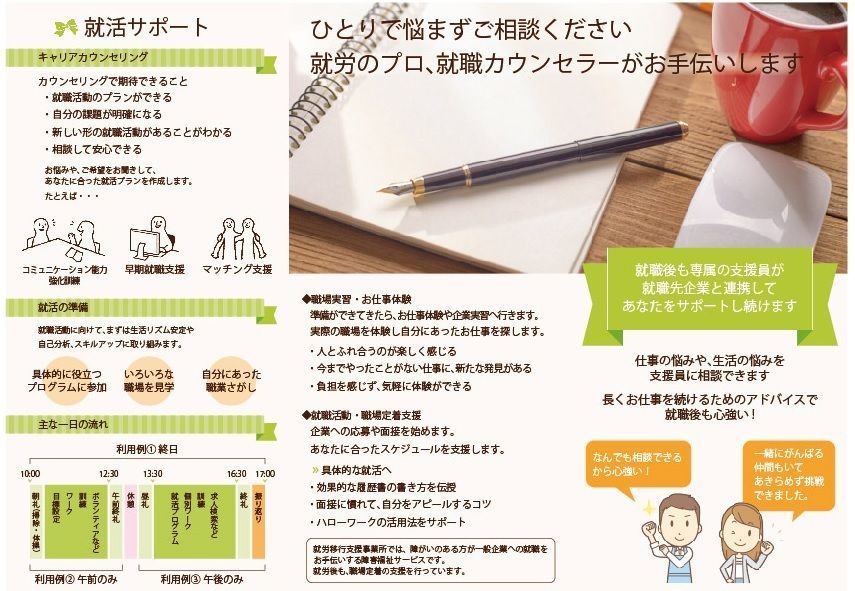 就活サポート
キャリアカウンセリング
カウンセリングで期待できること
・就職活動のプランができる
・自分の課題が明確になる
・新しい形の就職活動があることがわかる
・相談して安心できる
お悩みや、ご希望をお聞きして、
あなたに合った就活プランを作成します。
たとえば・・・
コミュニケーション能力
強化訓練
早期就職支援
マッチング支援
就活の準備
就職活動に向けて、まずは生活リズム安定や
自己分析、スキルアップに取り組みます。
具体的に役立つ
プログラムに参加
いろいろな
職場を見学
自分にあった
職業さがし
主な一日の流れ
利用例① 終日
10:00
12:30
13:30
16:30
17:00
朝礼(掃除・体操)
目標設定
ワーク
訓練
ボランティアなど
午前終礼
休憩
昼礼
就活プログラム
個別ワーク
訓練
求人検索など
終礼
振り返り
利用例② 午前のみ
利用例③ 午後のみ
ひとりで悩まずご相談ください
就労のプロ、就職カウンセラーがお手伝いします
◆職場実習・お仕事体験
準備ができてきたら、お仕事体験や企業実習へ行きます。
実際の職場を体験し自分にあったお仕事を探します。
・人とふれ合うのが楽しく感じる
・今までやったことがない仕事に、新たな発見がある
・負担を感じず、気軽に体験ができる
◆就職活動・職場定着支援
企業への応募や面接を始めます。
あなたに合ったスケジュールを支援します。
» 具体的な就活へ
・効果的な履歴書の書き方を伝授
・面接に慣れて、自分をアピールするコツ
・ハローワークの活用法をサポート
就労移行支援事業所では、障がいのある方が一般企業への就職を
お手伝いする障害福祉サービスです。
就労後も、職場定着の支援を行っています。
就職後も専属の支援員が
就職先企業と連携して
あなたをサポートし続けます
仕事の悩みや、生活の悩みを
支援員に相談できます
長くお仕事を続けるためのアドバイスで
就職後も心強い！
なんでも相談できる
から心強い！
一緒にがんばる
仲間もいて
あきらめず挑戦
できました。